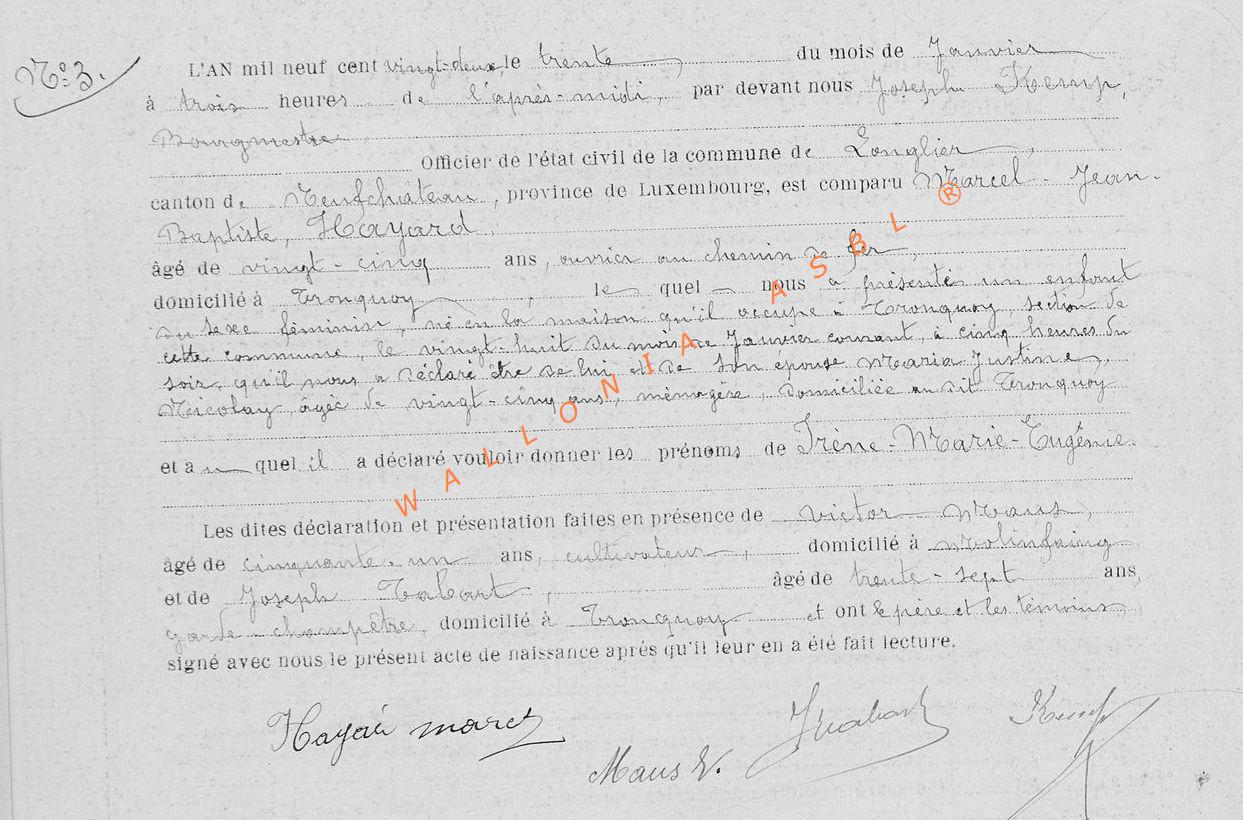 N°. 3.
L'AN mil neuf cent vingt-deux, le trente du mois de Janvier
à trois heures de l'après-midi, par devant nous Joseph Kemp,
Bourgmestre
Officier de l'état civil de la commune de Longlier,
canton de Neufchâteau, province de Luxembourg, est comparu Marcel-Jean-
Baptiste, Hayard,
âgé de vingt-cinq ans, ouvrier au chemin de fer,
domicilié à Tronquoy, le quel nous a présenté un enfant
du sexe féminin, né en la maison qu'il occupe à Tronquoy, section de
cette commune, le vingt-huit du mois de Janvier courant, à cinq heures du
soir, qu'il nous a déclaré être de lui et de son épouse Maria Justine,
Nicolay, âgée de vingt-cinq ans, ménagère, domiciliée au dit Tronquoy
et au quel il a déclaré vouloir donner les prénoms de Irène-Marie-Eugénie.
Les dites déclaration et présentation faites en présence de Victor Maus,
âgé de cinquante-un ans, cultivateur, domicilié à Molinfaing
et de Joseph Tabart, âgé de trente-sept ans,
garde-champêtre, domicilié à Tronquoy et ont le père et les témoins
signé avec nous le présent acte de naissance après qu'il leur en a été fait lecture.
Hayard marcel
Maus V.
Kemp
WALLONIA ASBL ®